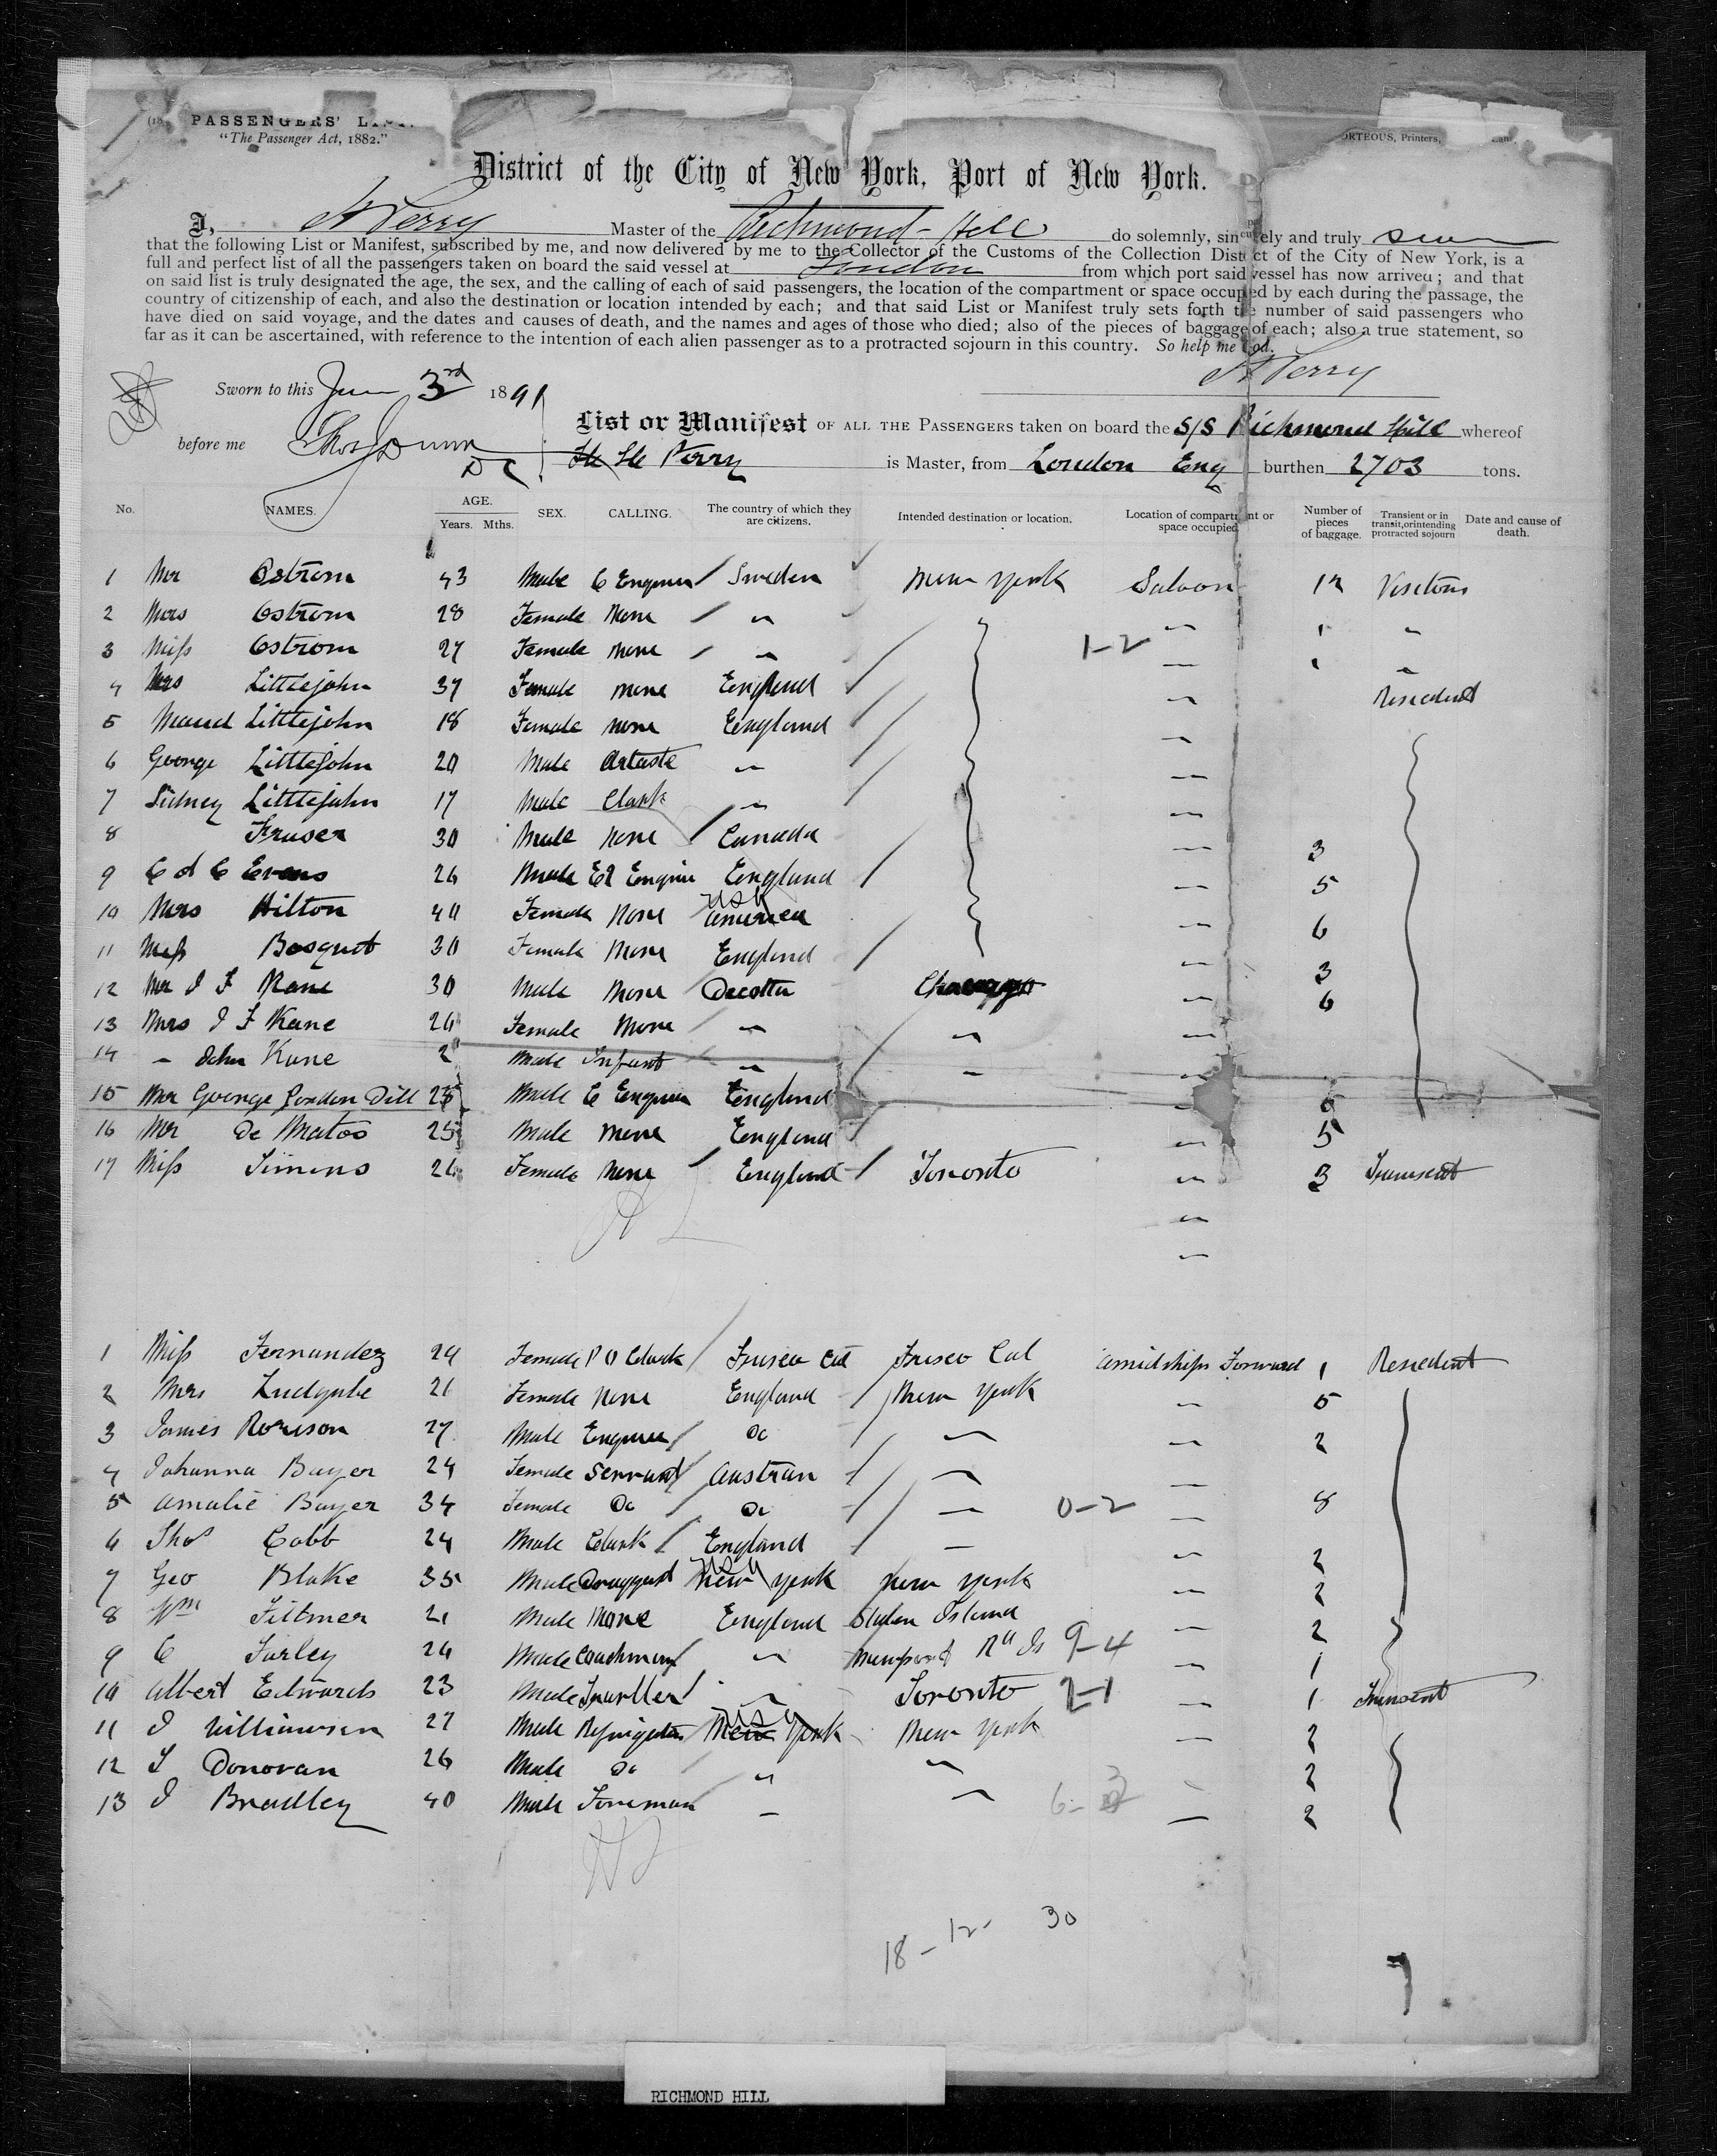 PASSENGERS' LIST.
"The Passenger Act, 1882."
ORTEOUS, Printers,
District of the City of New York, Port of New York.
I, H Perry Master of the Richmond-Hill do solemnly, sincerely and truly swear
that the following List or Manifest, subscribed by me, and now delivered by me to the Collector of the Customs of the Collection District of the City of New York, is a
full and perfect list of all the passengers taken on board the said vessel at London from which port said vessel has now arrived; and that
on said list is truly designated the age, the sex, and the calling of each of said passengers, the location of the compartment or space occupied by each during the passage, the
country of citizenship of each, and also the destination or location intended by each; and that said List or Manifest truly sets forth the number of said passengers who
have died on said voyage, and the dates and causes of death, and the names and ages of those who died; also of the pieces of baggage of each; also a true statement, so
far as it can be ascertained, with reference to the intention of each alien passenger as to a protracted sojourn in this country. So help me God.
H Perry
Sworn to this June 3rd 1891
List or Manifest OF ALL THE PASSENGERS taken on board the S/S Richmond Hill whereof
before me Thos J Dunn
DC
Perry is Master, from London Eng burthen 2703 tons.
No. NAMES. AGE. Years. Mths. SEX. CALLING. The country of which they are citizens. Intended destination or location. Location of compartment or space occupied. Number of pieces of baggage. Transient or in transit, or intending protracted sojourn Date and cause of death.
1 Mr Ostrom 43 Male C Engineer Sweden New York Saloon 12 Visitors
2 Mrs Ostrom 28 Female None " " 1 "
3 Miss Ostrom 27 Female None " 1-2 " 1 "
4 Mrs Littlejohn 37 Female None England " Resedent
5 Maud Littlejohn 18 Female None England "
6 George Littlejohn 20 Male Artiste " "
7 Sidney Littlejohn 17 Male Clark " "
8 Fraser 30 Male None Canada " 3
9 C d C Evans 26 Male El Engin England " 5
10 Mrs Hilton 40 Female None America USA " 6
11 Miss Bosquet 30 Female None England " 3
12 Mr J F Kane 30 Male None Decotta Chicago " 6
13 Mrs J F Kane 26 Female None " " "
14 " John Kane 2 Male Infant " " "
15 Mr George Gordon Dill 25 Male C Engineer England " 6
16 Mr De Matos 25 Male None England " 5
17 Miss Simens 26 Female None England Toronto " 3 Transient
"
"
1 Miss Fernandez 24 Female P O Clark Frisco Cal Frisco Cal Amidships Forward 1 Resedent
2 Mrs Ludgate 21 Female None England New York " 5
3 James Rorison 27 Male Engineer Do " " 2
4 Johanna Bayer 24 Female Servant Austrian " "
5 Amalie Bayer 34 Female Do Do " 0-2 " 8
6 Thos Cobb 24 Male Clark England " " 2
7 Geo Blake 35 Male Druggist New York USA New York " 2
8 Wm Fillmer 21 Male None England Staten Island " 2
9 C Turley 24 Male Coachman " Newport Rd Is 9-4 " 1
10 Albert Edwards 23 Male Traveller " Toronto 2-1 " 1 Transent
11 J Williamson 27 Male Refrigerator New York USA New York " 2
12 T Donovan 26 Male Do " " " 2
13 J Bradley 40 Male Foreman " " 6-3 " 2
18-12- 30
RICHMOND HILL